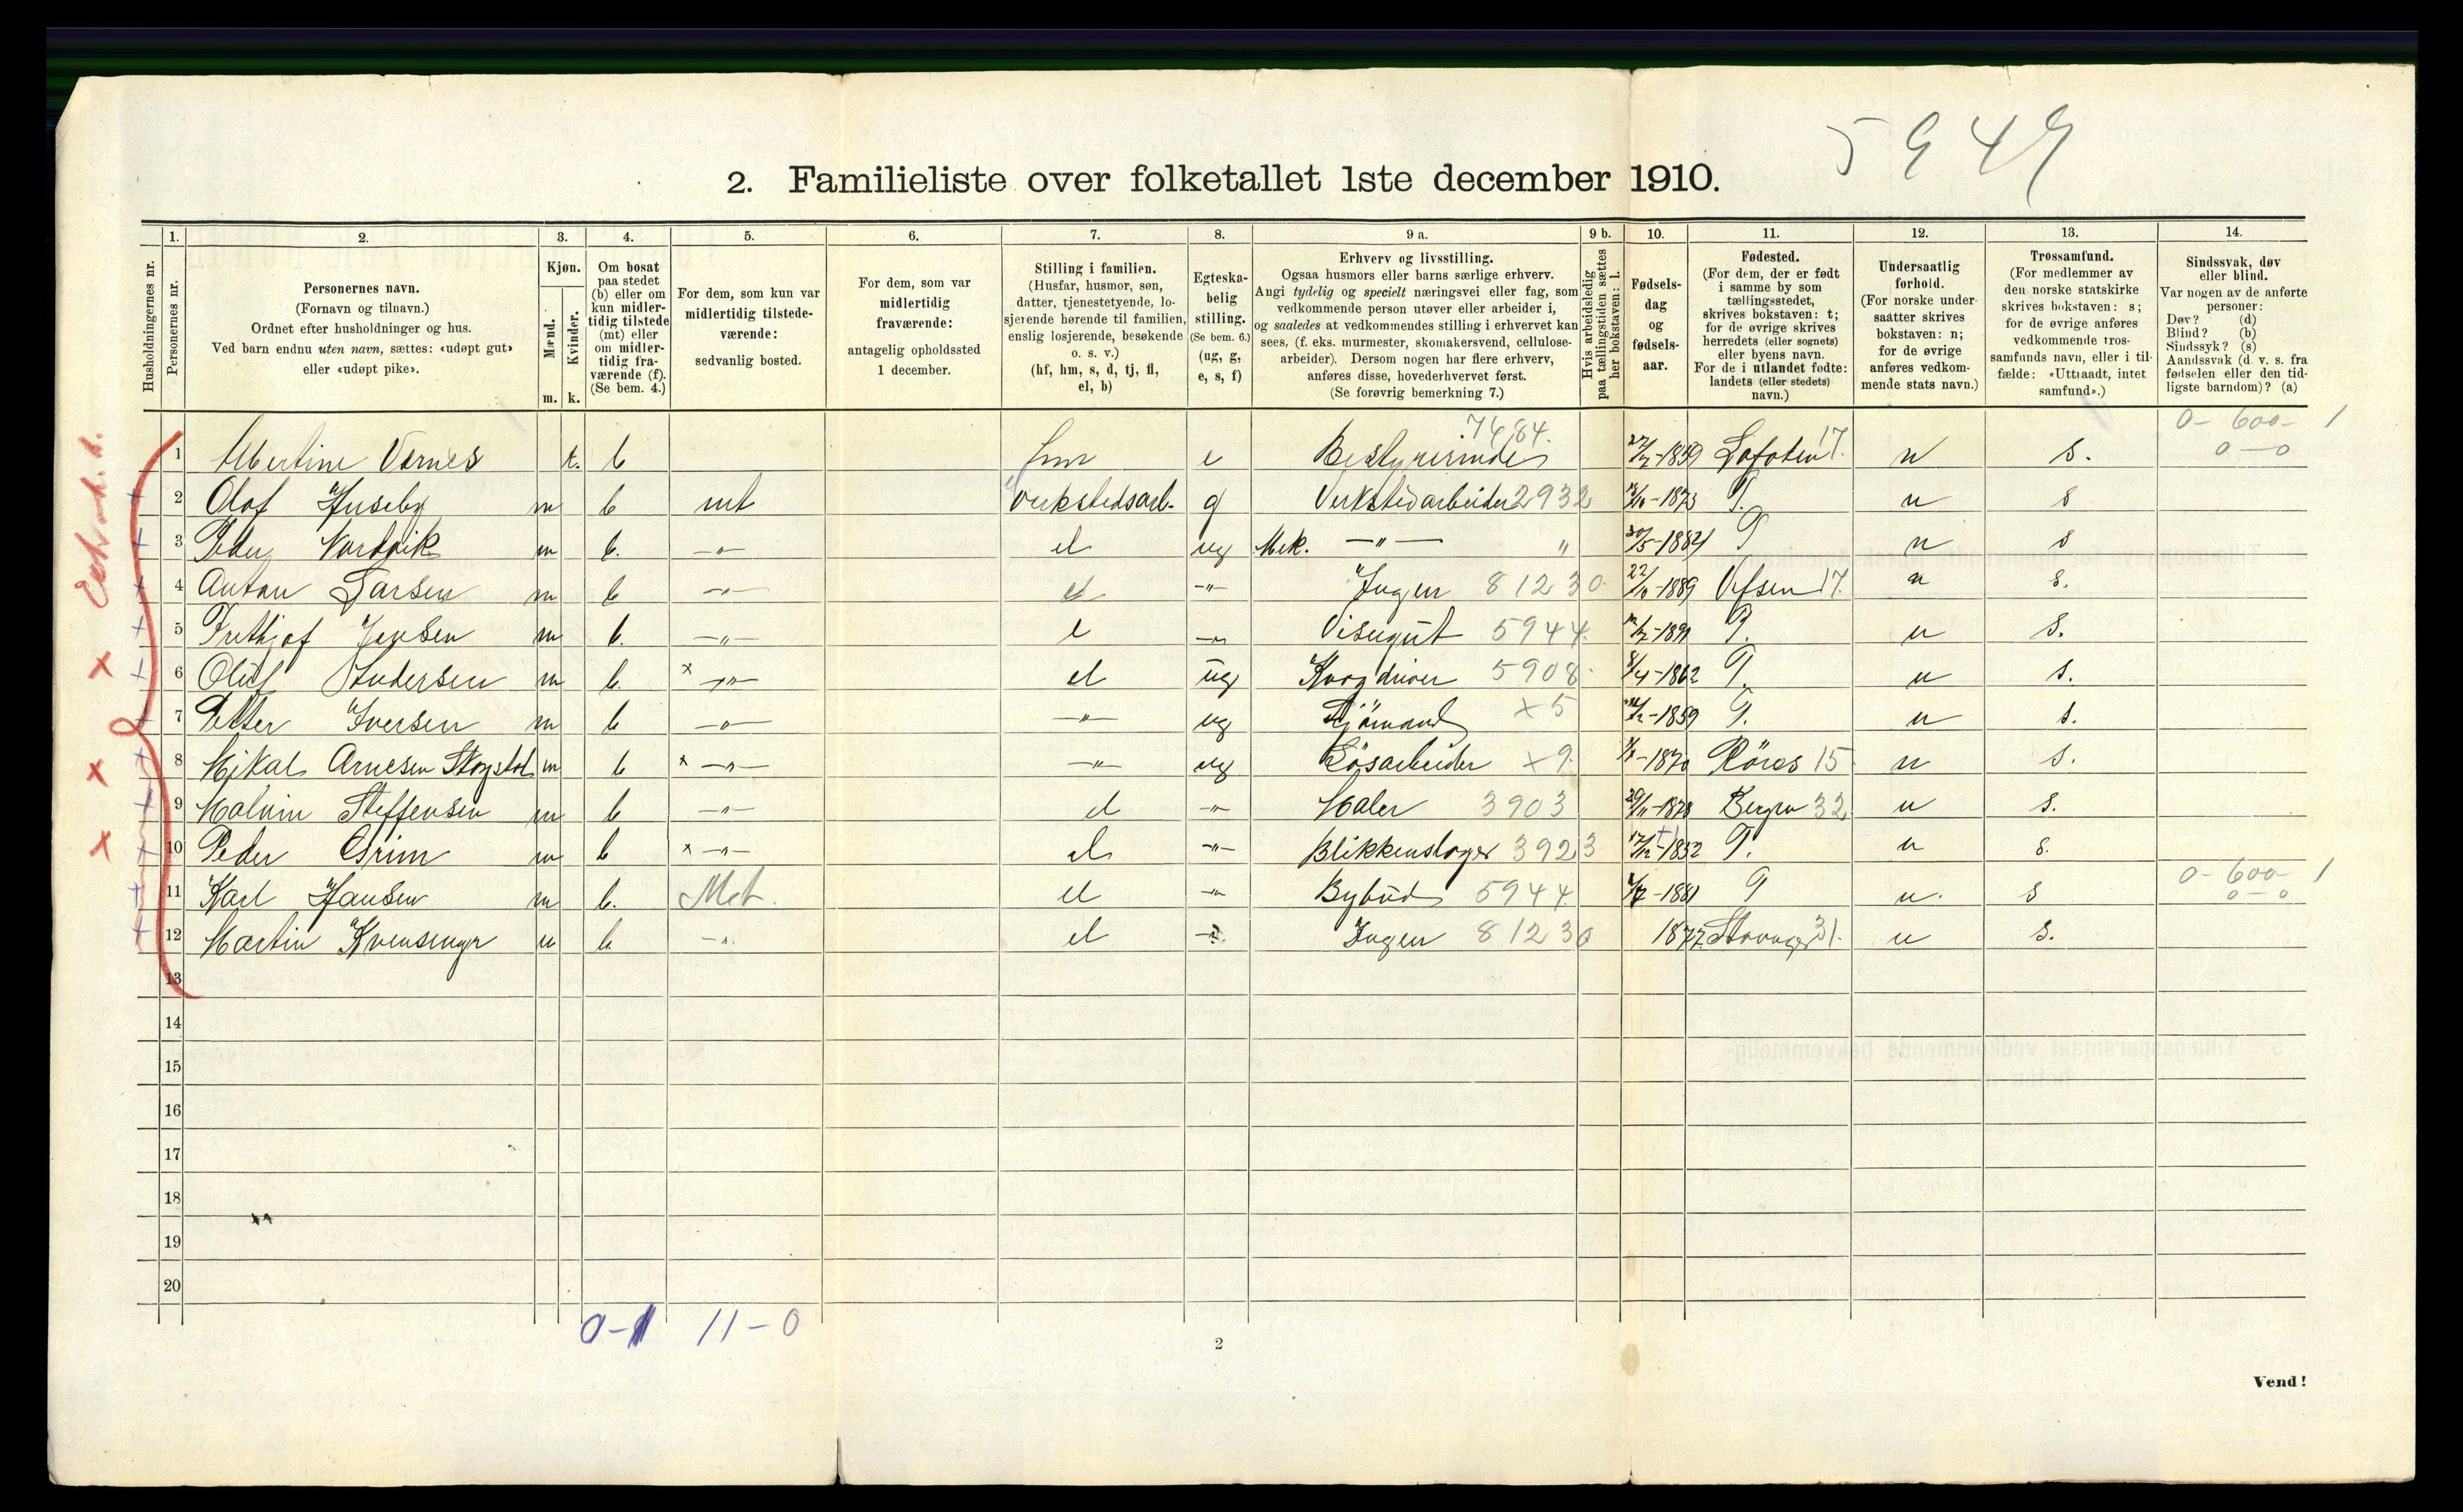 5949
2. Familieliste over folketallet 1ste december 1910.
1. 2. 3. 4. 5. 6. 7. 8. 9 a. 9 b. 10. 11. 12. 13. 14.
Husholdningernes nr.
Personernes nr.
Personernes navn.
(Fornavn og tilnavn.)
Ordnet efter husholdninger og hus.
Ved barn endnu uten navn, sættes: «udøpt gut»
eller «udøpt pike».
Kjøn.
Mænd.
Kvinder.
m. k.
Om bosat
paa stedet
(b) eller om
kun midler-
tidig tilstede
(mt) eller
om midler-
tidig fra-
værende (f).
(Se bem. 4.)
For dem, som kun var
midlertidig tilstede-
værende:
sedvanlig bosted.
For dem, som var
midlertidig
fraværende:
antagelig opholdssted
1 december.
Stilling i familien.
(Husfar, husmor, søn,
datter, tjenestetyende, lo-
sjerende hørende til familien,
enslig losjerende, besøkende
o. s. v.)
(hf, hm, s, d, tj, fl,
el, b)
Egteska-
belig
stilling.
(Se bem. 6.)
(ug, g,
e, s, f)
Erhverv og livsstilling.
Ogsaa husmors eller barns særlige erhverv.
Angi tydelig og specielt næringsvei eller fag, som
vedkommende person utøver eller arbeider i,
og saaledes at vedkommendes stilling i erhvervet kan
sees, (f. eks. murmester, skomakersvend, cellulose-
arbeider). Dersom nogen har flere erhverv,
anføres disse, hovederhvervet først.
(Se forøvrig bemerkning 7.)
Hvis arbeidsledig
paa tællingstiden sættes
her bokstaven: l.
Fødsels-
dag
og
fødsels-
aar.
Fødested.
(For dem, der er født
i samme by som
tællingsstedet,
skrives bokstaven: t;
for de øvrige skrives
herredets (eller sognets)
eller byens navn.
For de i utlandet fødte:
landets (eller stedets)
navn.)
Undersaatlig
forhold.
(For norske under-
saatter skrives
bokstaven: n;
for de øvrige
anføres vedkom-
mende stats navn.)
Trossamfund.
(For medlemmer av
den norske statskirke
skrives bokstaven: s;
for de øvrige anføres
vedkommende tros-
samfunds navn, eller i til-
fælde: «Uttraadt, intet
samfund».)
Sindssvak, døv
eller blind.
Var nogen av de anførte
personer:
Døv? (d)
Blind? (b)
Sindssyk? (s)
Aandssvak (d. v. s. fra
fødselen eller den tid-
ligste barndom)? (a)
7484. 0-600- 1
1 Albertine Vernes k. b hm e Bestyrerinde 27/2-1859 Lofoten 17. n s. 0-0
2 Olaf Huseby m b mt Verkstedsarb. g Verkstedarbeider 2932 -1873 T. n s
3 Peder Nordvik m b. -"- el ug Mek. -"- " 30/5-1884 T n s
4 Anton Larsen m b -"- el -"- Ingen 81230 -1889 Vefsen 17. n s.
5 Frithjof Jensen m b. -"- el -"- Visergut 5944. -1891 T. n s.
6 Oluf Andersen m b. x -"- el ug 5908 8/4-1862 T. n s.
7 Petter Iversen m b -"- -"- ug Sjømand x5 -1859 T. n s.
8 Mikal Arnesen m b x -"- -"- ug Løsarbeider x9 -1870 Röros 15 n s.
9 Malvin Steffensen m b -"- el -"- Maler 3903 29/11-1878 Bergen 32 n s.
10 Peder Grim m b x -"- el -"- Blikkenslager 3923 17/12-1852 T. n s.
0-600- 1
11 Karl Hansen m b. Mt. el -"- Bybud 5944 -1881 T n. s 0-0
12 Martin m b -"- el -"- Ingen 81230 1877 Stavanger 31. n s.
13
14
15
16
17
18
19
20
0-1 11-0
2
Vend!